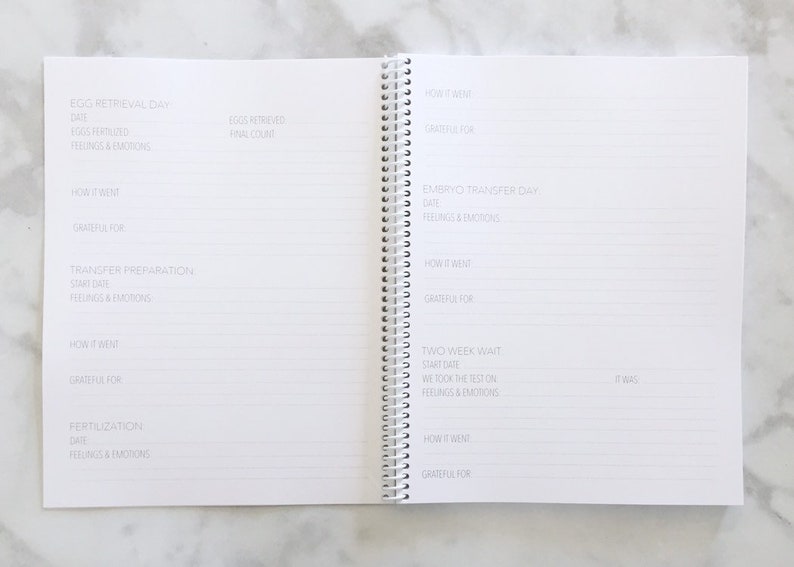 EGG RETRIEVAL DAY:
DATE: EGGS RETRIEVED:
EGGS FERTILIZED: FINAL COUNT:
FEELINGS & EMOTIONS:
HOW IT WENT:
GRATEFUL FOR:
TRANSFER PREPARATION:
START DATE:
FEELINGS & EMOTIONS:
HOW IT WENT:
GRATEFUL FOR:
FERTILIZATION:
DATE:
FEELINGS & EMOTIONS:
HOW IT WENT:
GRATEFUL FOR:
EMBRYO TRANSFER DAY:
DATE:
FEELINGS & EMOTIONS:
HOW IT WENT:
GRATEFUL FOR:
TWO WEEK WAIT:
START DATE:
WE TOOK THE TEST ON: IT WAS:
FEELINGS & EMOTIONS:
HOW IT WENT:
GRATEFUL FOR: